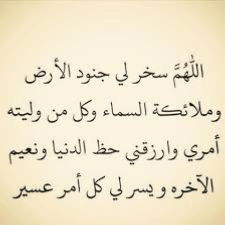 اللَّهُمَّ سخر لي جنود الأرض
وملائكة السماء وكل من وليته
أمري وارزقني حظ الدنيا ونعيم
الآخره و يسر لي كل أمر عسير